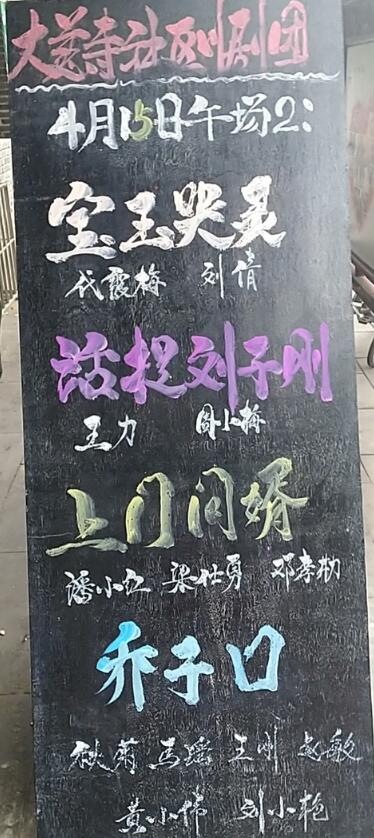 大慈寺社区川剧团
4月15日午场2:
宝玉哭灵
代霞梅 刘倩
活捉刘子刚
王力 周小梅
上门问婿
潘小红 梁仕勇 邓孝勤
乔子口
马瑶 王刚 赵敏
黄小伟 刘小艳